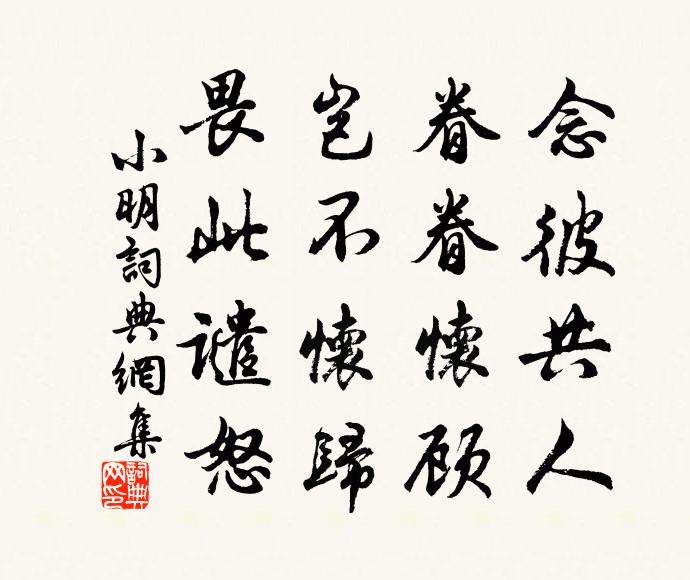 念彼共人
眷眷懷顧
豈不懷歸
畏此譴怒
小明詞典網集
詞典
网印